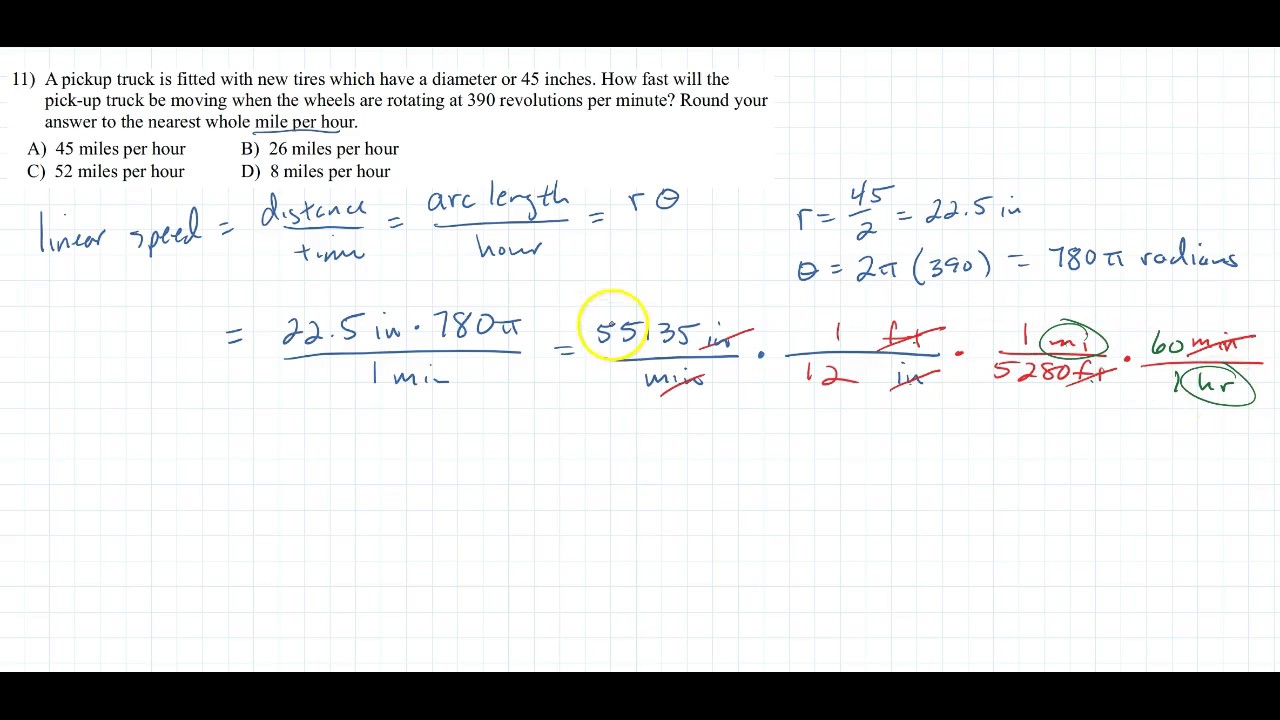 11) A pickup truck is fitted with new tires which have a diameter or 45 inches. How fast will the
pick-up truck be moving when the wheels are rotating at 390 revolutions per minute? Round your
answer to the nearest whole mile per hour.
A) 45 miles per hour B) 26 miles per hour
C) 52 miles per hour D) 8 miles per hour
linear speed = distance / time = arc length / hour = r θ
r = 45/2 = 22.5 in
θ = 2π (390) = 780π radians
= 22.5 in · 780π / 1 min = 55135 in / min · 1 ft / 12 in · 1 mi / 5280 ft · 60 min / 1 hr